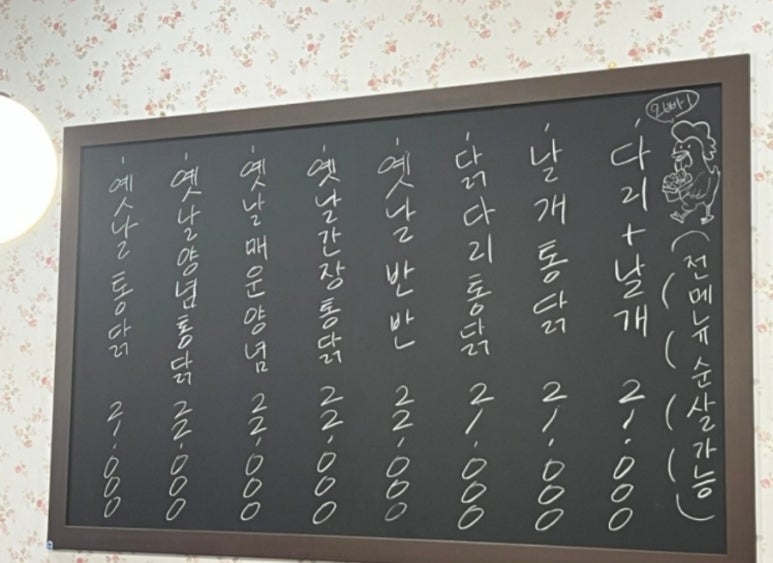 옛날통닭 21,000
옛날양념통닭 22,000
옛날매운양념 22,000
옛날간장통닭 22,000
옛날 반반 22,000
닭다리통닭 21,000
날개통닭 21,000
다리+날개 21,000
(전메뉴 순살가능)